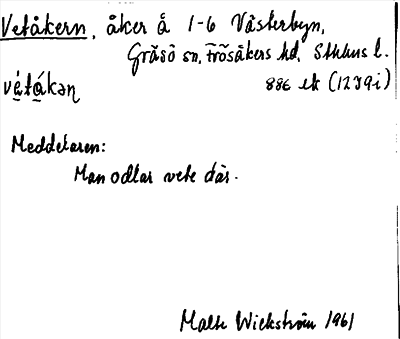 Vetåkern, åker å 1-6 Västerbyn,
Gräsö sn, Frösåkers hd, Sthlms l.
vétákən 886 ek (12J9i)
Meddelaren:
Man odlar vete där.
Malte Wickström 1961